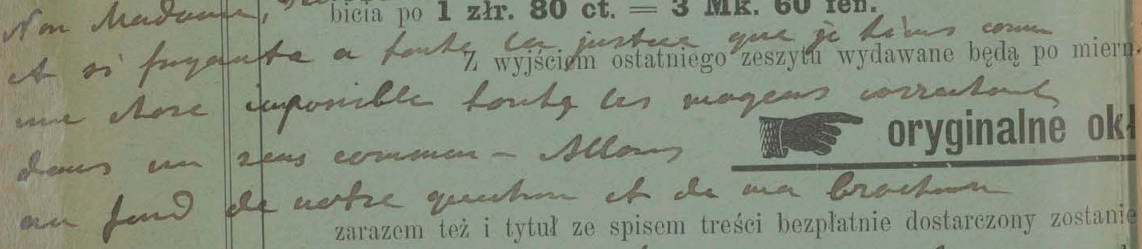 Non Madame,
bicia po 1 złr. 80 ct. = 3 Mk. 60 fen.
et si fuyante a toute la justice que je tiens comme
Z wyjściem ostatniego zeszytu wydawane będą po miern
une chose impossible toute les
oryginalne okł
dans un sens commun – Allons
au fond de notre question et de ma brochure
zarazem też i tytuł ze spisem treści bezpłatnie dostarczony zostanie